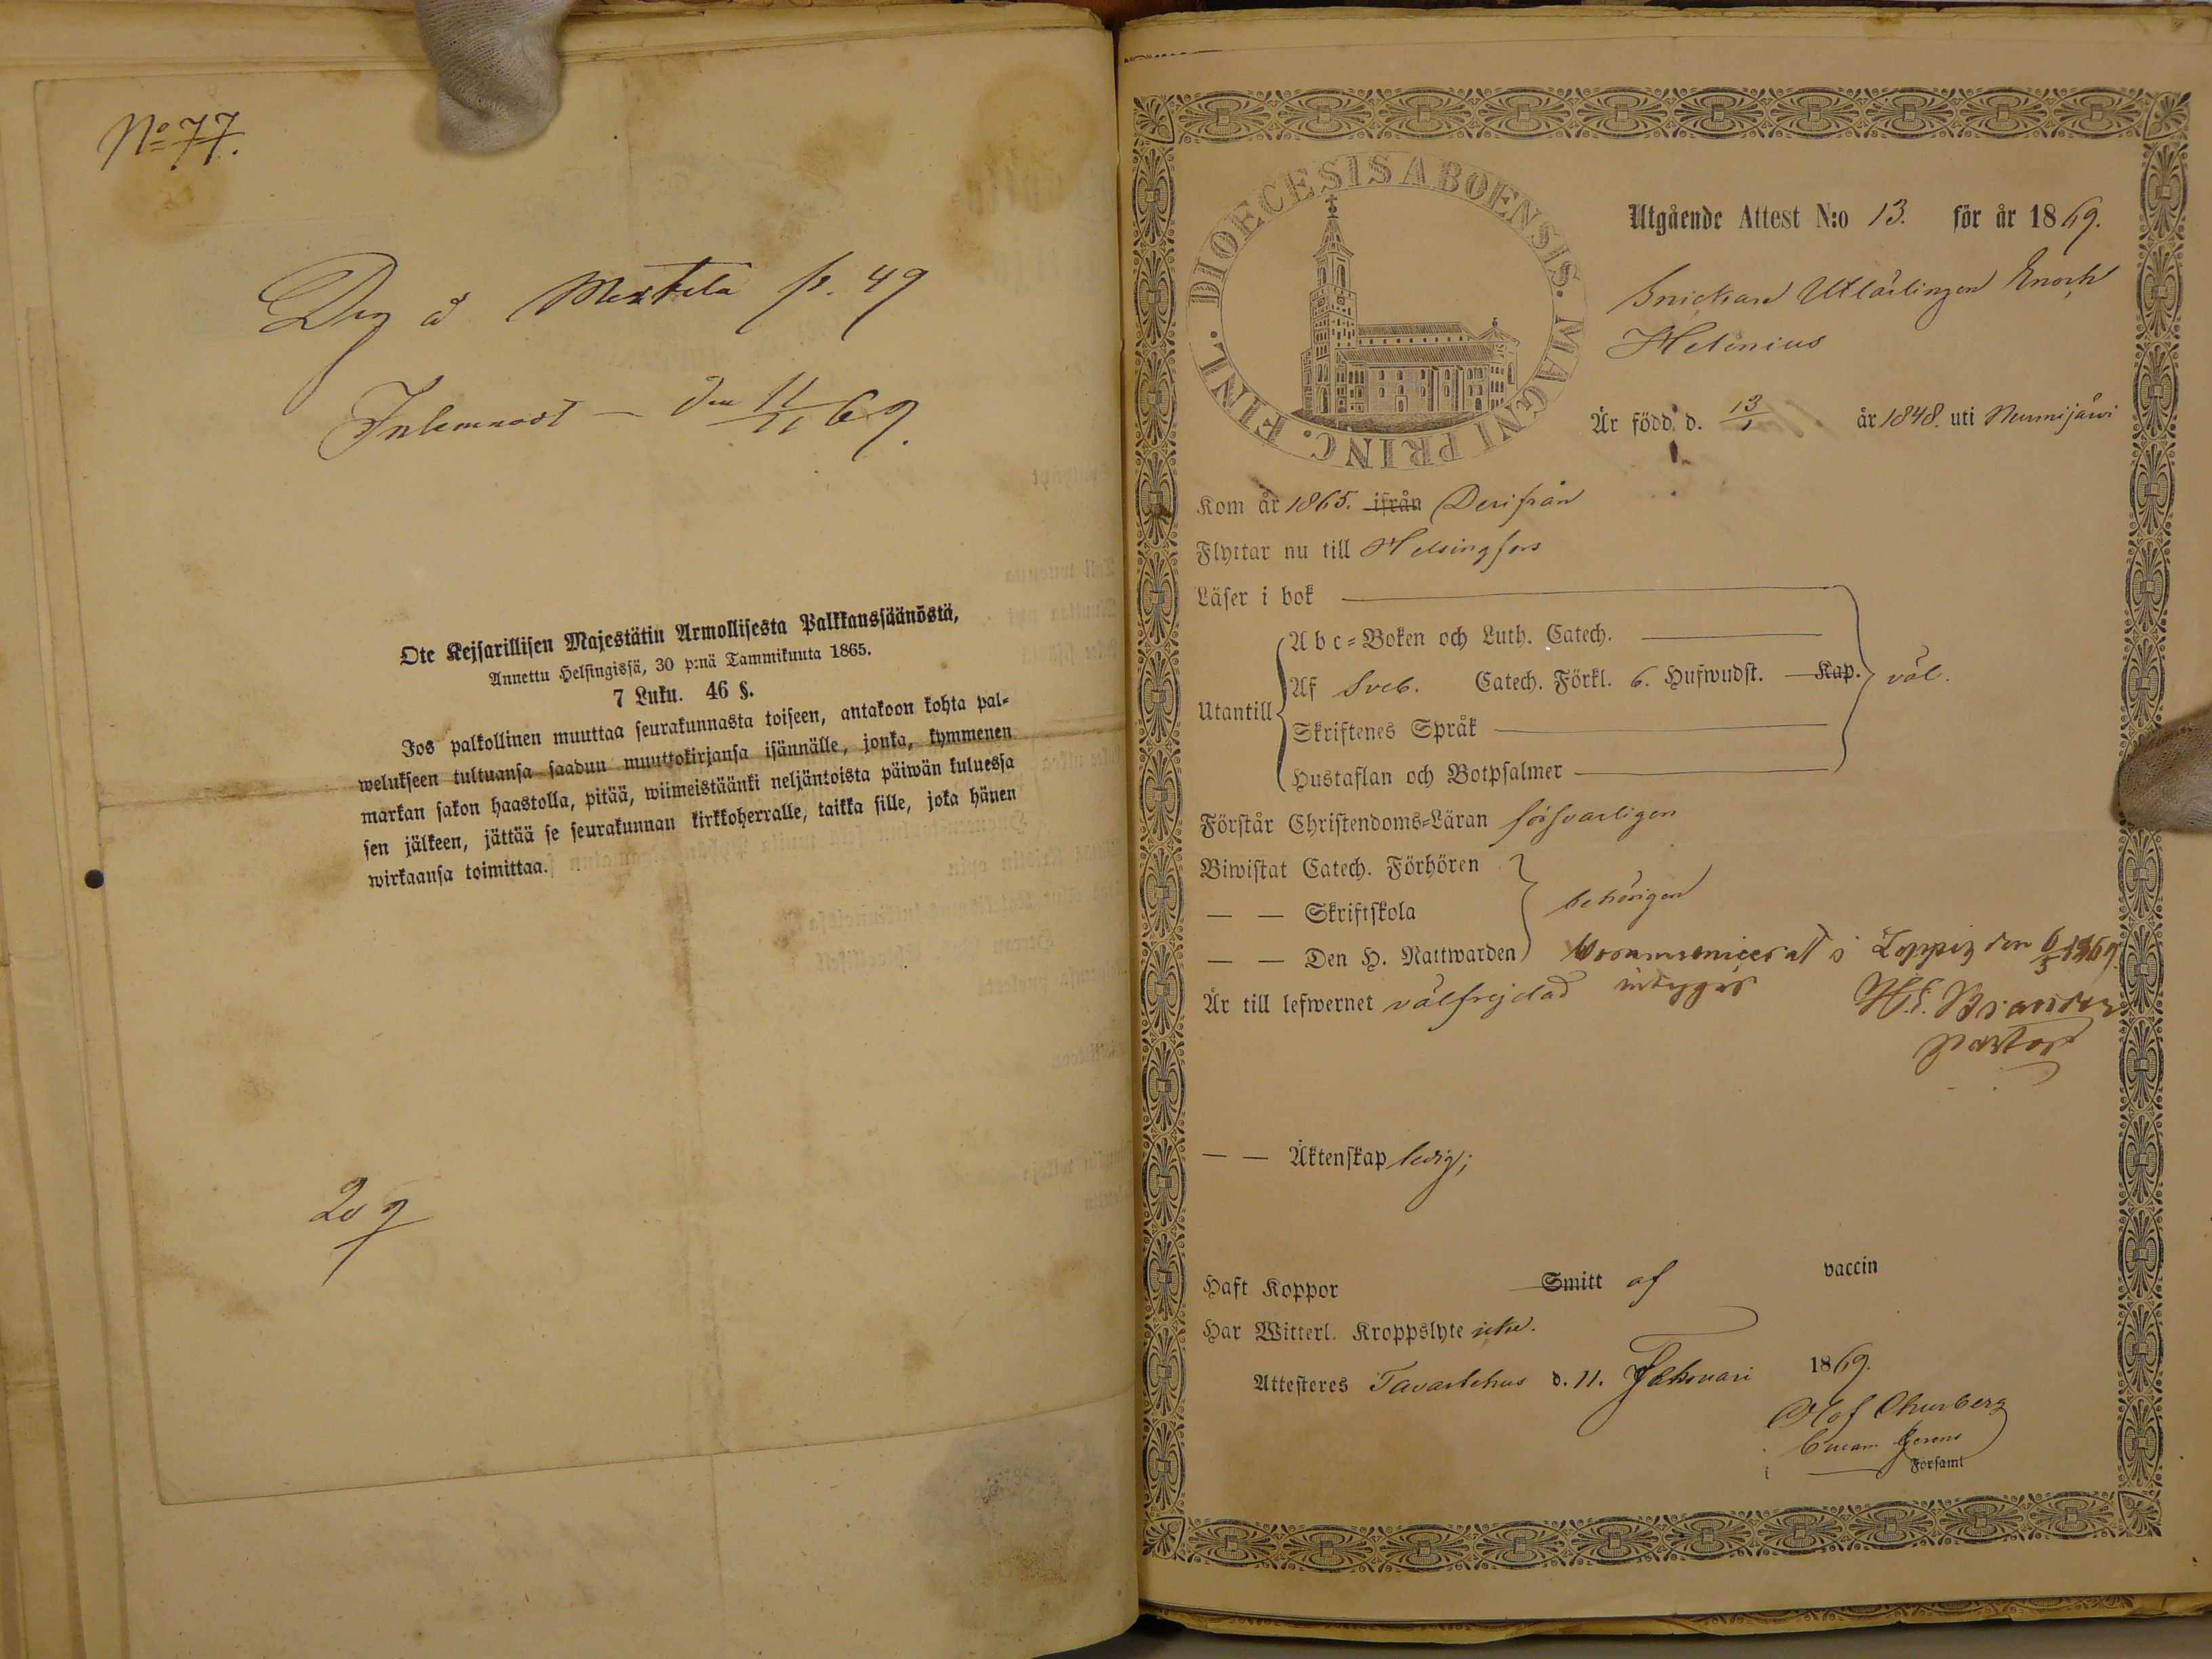 No 77.
Drg å Mextela p. 49
Inlemnadt — den 11/11 69.
Ote Keisarillisen Majestätin Armollisesta Palkkaussäänöstä,
Annettu Helsingissä, 30 p:nä Tammikuuta 1865.
7 Luku. 46 §.
Jos palkollinen muuttaa seurakunnasta toiseen, antakoon kohta pal-
welukseen tultuansa saadun muuttokirjansa isännälle, jonka, kymmenen
markan sakon haastolla, pitää, wiimeistäänki neljäntoista päiwän kuluessa
sen jälkeen, jättää se seurakunnan kirkkoherralle, taikka sille, joka hänen
wirkaansa toimittaa.
209
DIOECESIS ABOENSIS. MAGNI PRINC. FINL.
Utgående Attest N:o 13. för år 1869.
Snickare Utlärlingen Enoch
Helenius
Är född d. 13/1 år 1848. uti Nurmijärvi
Kom år 1865. ifrån Derifrån
Flyttar nu till Helsingfors
Läser i bok
Utantill
Abc-Boken och Luth. Catech.
Af Sveb. Catech. Förkl. 6. Hufwudst. Kap. väl.
Skriftenes Språk
Hustaflan och Botpsalmer
Förstår Christendoms-Läran försvarligen
Biwistat Catech. Förhören
— — Skriftskola behörigen
— — Den H. Nattwarden i Loppis den
Är till lefwernet välfrejdad intygar
Pastor
— — Äktenskap ledig;
Haft Koppor Smitt af vaccin
Har Witterl. Kroppslyte icke.
Attesteres Tavastehus d. 11. 1869.
Olof Churberg
Curam Gerens
i Församl